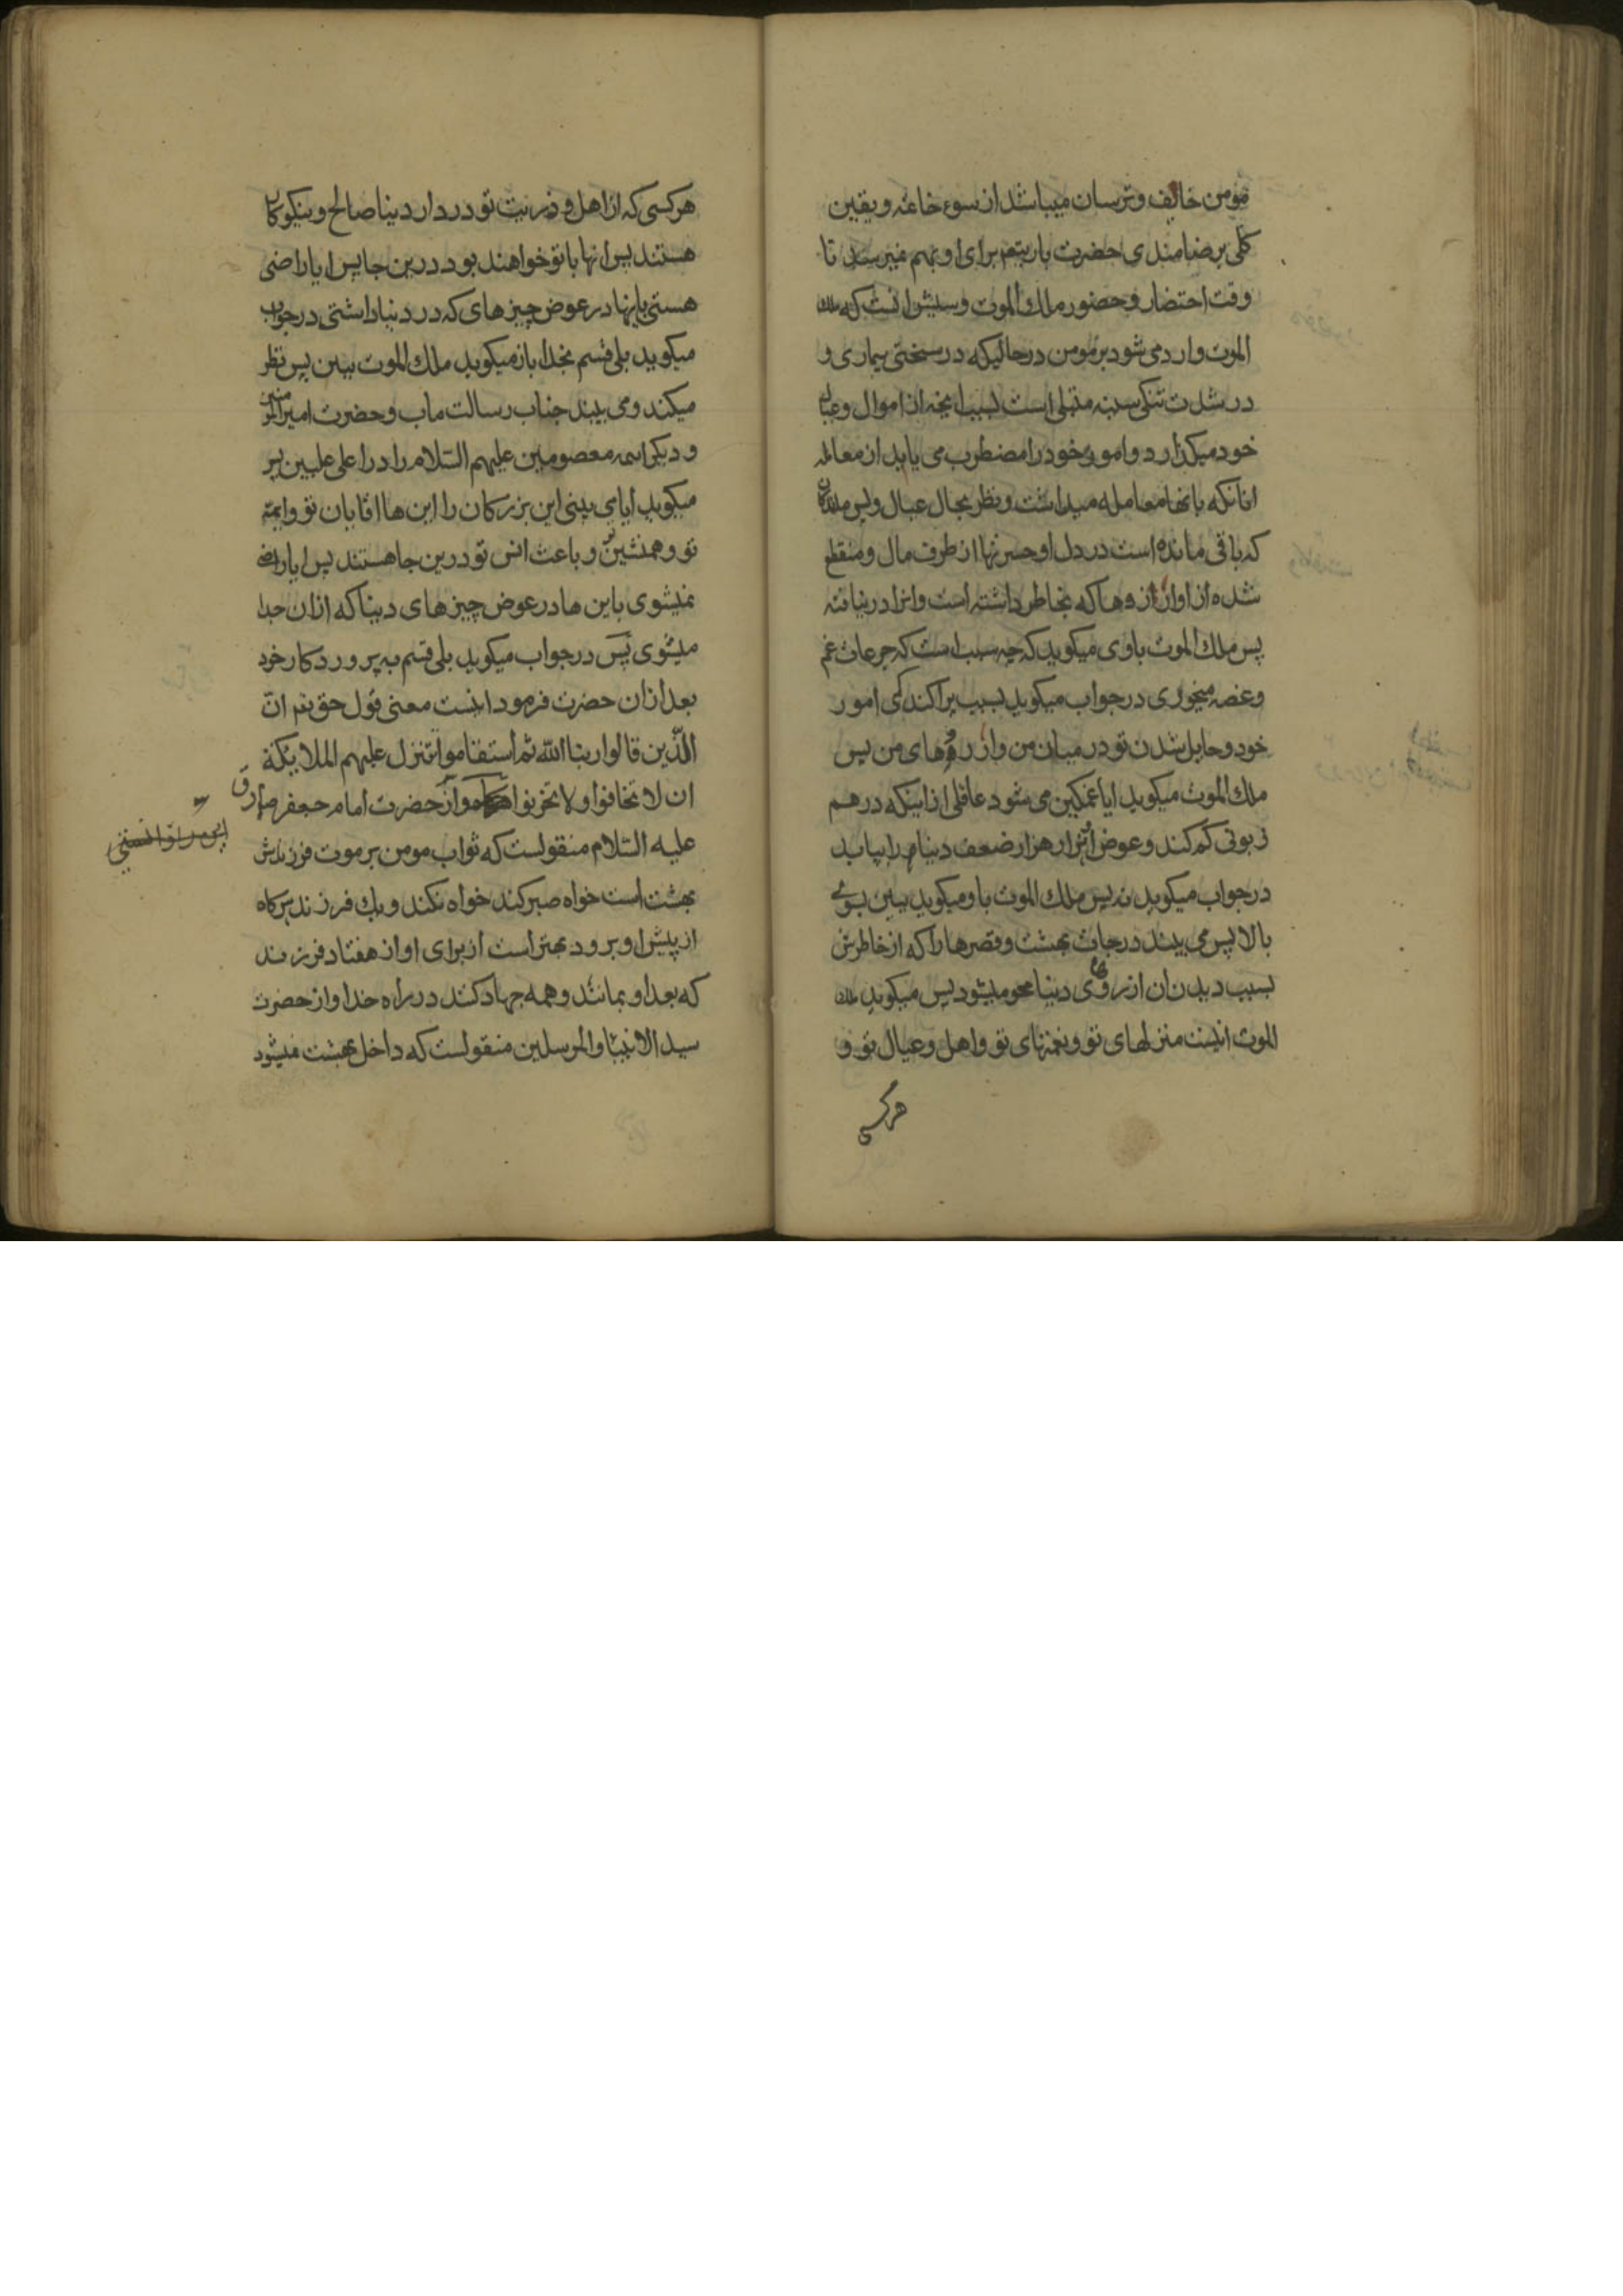 مومن خائف و ترسان میباشد از سوء خاتمه و یقین
کلی برضامندی حضرت باریتعم برای او بهم نمیرسد تا
وقت احتضار و حضور ملك الموت و سببش انست که ملك
الموت وارد می شود بر مومن در حالیکه در سختی بیماری و
در شدت تنکی سینه مبتلی است بسبب انچه از اموال و عیال
خود میکذارد و امور خود را مضطرب می یابد از معامله
انانکه بانها معامله میداشت و نظر بحال عیال و پس ماندکان
که باقی مانده است در دل او حسرتها از طرف مال و منقطع
شده از او ارزوها که بخاطر داشته است و انرا در نیافته
پس ملك الموت باوی میکوید که چه سبب است که جرعات غم
و غصه میخوری در جواب میکوید بسبب پراکندکی امور
خود و حایل شدن تو در میان من و ارزوهای من پس
ملك الموت میکوید ایا غمکین می شود عاقلی از اینکه درهم
زبونی کم کند و عوض انهزار هزار ضعف دنیا را بیابد
در جواب میکوید نه پس ملك الموت باو میکوید ببین بسوی
بالا پس می بیند درجات بهشت و قصرها را که از خاطرش
بسبب دیدن ان ارزوی دنیا محو میشود پس میکوید ملك
الموت اینست منزلهای تو و نعمتهای تو و اهل و عیال تو و
هرکسی
هرکسی که از اهل و ذریت تو در دار دنیا صالح و نیکوکار
هستند پس انها با تو خواهند بود درین جا پس ایا راضی
هستی باینها در عوض چیزهای که در دنیا داشتی در جواب
میکوید بلی قسم بخدا باز میکوید ملك الموت ببین پس نظر
میکند و می بیند جناب رسالت ماب و حضرت امیر المومنین
و دیکر ائمه معصومین علیهم السلام را در اعلی علیین پس
میکوید ایا می بینی این بزرکان را این ها اقایان تو و ائمه
تو و همنشین و باعث انس تو درین جا هستند پس ایا راضی
نمیشوی باین ها در عوض چیزهای دنیا که ازان جدا
میشوی پس در جواب میکوید بلی قسم به پروردکار خود
بعد ازان حضرت فرمود اینست معنی قول حق تعم ان
الذین قالوا ربنا الله ثم استقاموا تتنزل علیهم الملایکة
ان لا تخافوا و لا تحزنوا و از حضرت امام جعفر صادق
علیه السلام منقولست که ثواب مومن بر موت فرزندش
بهشت است خواه صبر کند خواه نکند و یك فرزند هرکاه
از پیش او برود بهتر است از برای او از هفتاد فرزند
که بعد او بمانند و همه جهاد کنند در راه خدا و از حضرت
سید الانبیا و المرسلین منقولست که داخل بهشت میشود